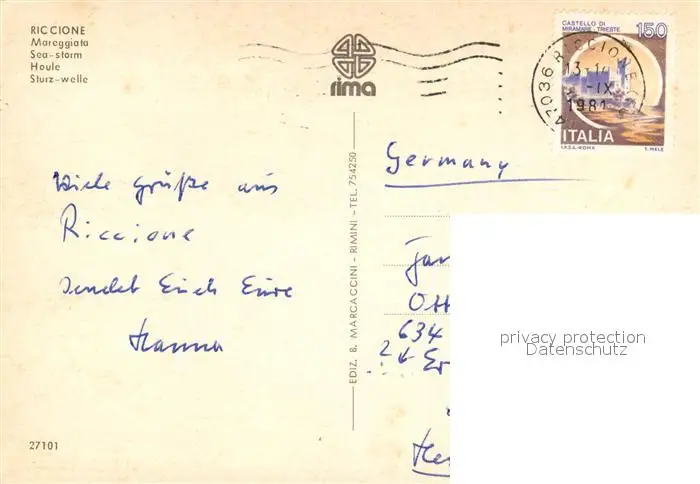 RICCIONE
Mareggiata
Sea-storm
Houle
Sturz-welle
rima
CASTELLO DI
MIRAMARE - TRIESTE
150
47036 RICCIONE
13-14
IX
1981
ITALIA
I.P.Z.S.-ROMA T. MELE
Viele Grüße aus
Riccione
sendet Euch Eure
Hanna
EDIZ. B. MARCACCINI - RIMINI - TEL. 754250
Germany
634
privacy protection
Datenschutz
27101